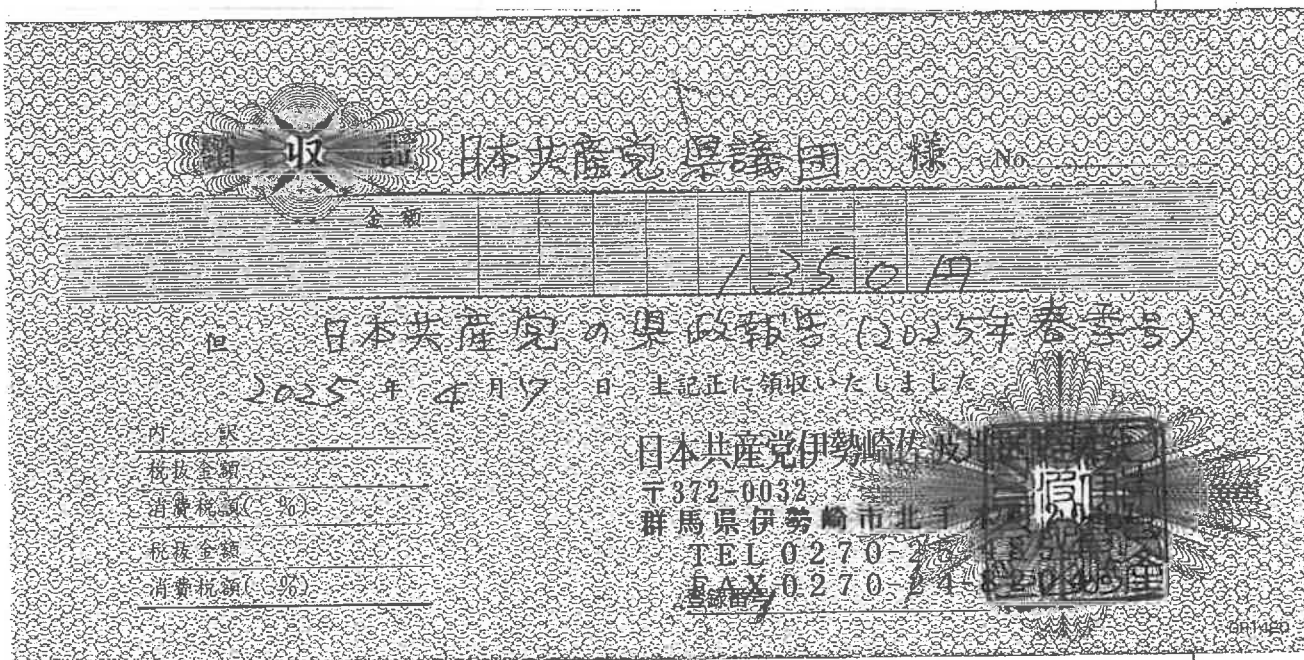 領収証 日本共産党 県議団 様 No.
金額
1350円
但 日本共産党の県政報告(2025年春季号)
2025年 4月17日 上記正に領収いたしました
内 訳
税抜金額
消費税額( %)
税抜金額
消費税額( %)
日本共産党伊勢崎佐波
〒372-0032
群馬県伊勢崎市北千木町
TEL 0270-2
FAX 0270-24-820
登録番号
GR1420